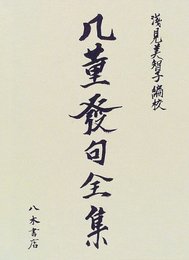 浅見美智子編校
几董發句全集
八木書店